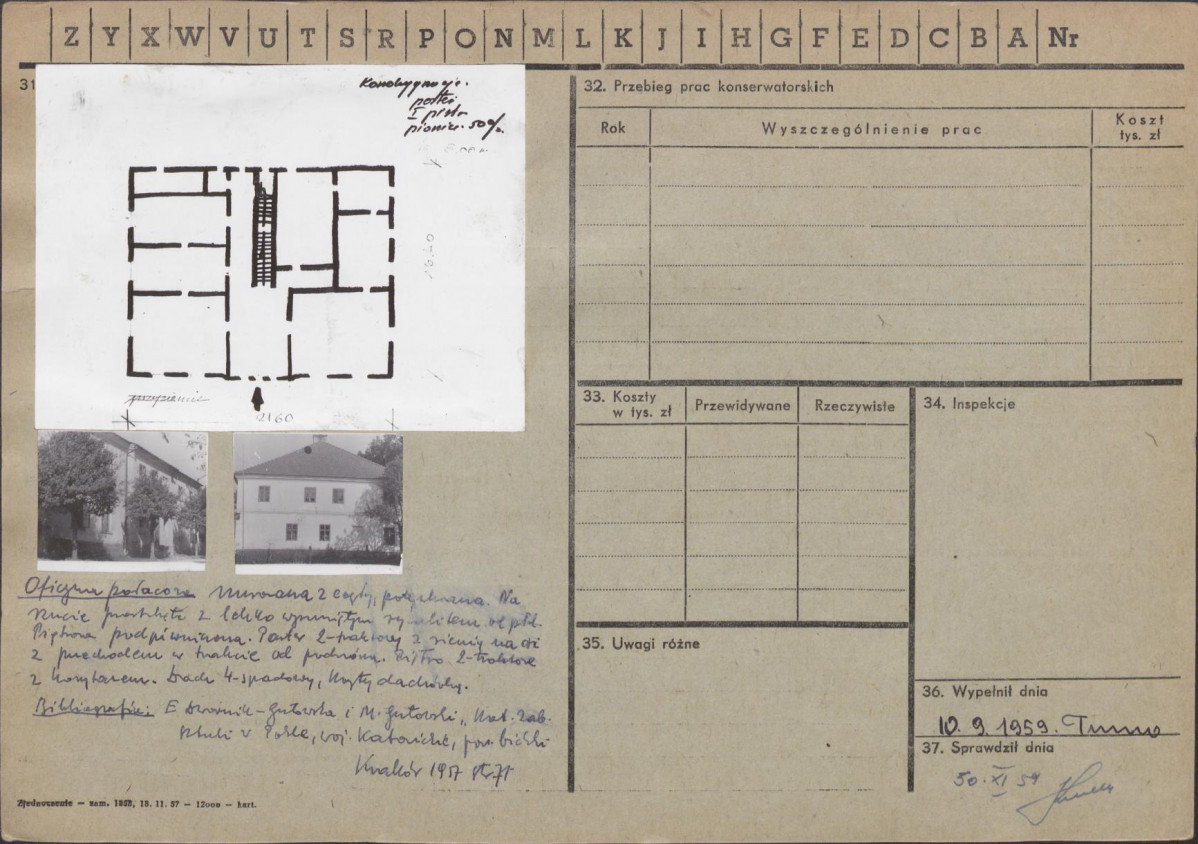 Z Y X W V U T S R P O N M L K J I H G F E D C B A Nr
31
Kondygnacje.
parter
I piętro
piwnice. 50%
16.20
przyziemie
2160
Oficyna pałacowa Murowana z cegły, potynkowana. Na
rzucie prostokąta z lekko wysuniętym ryzalitem od płd.
Piętrowa podpiwniczona. Parter 2-traktowy z sienią na osi
z przechodem w trakcie od podwórza. Piętro 2-traktowe
z korytarzem. Dach 4-spadowy, kryty dachówką.
Bibliografia: E Dwornik-Gutowska i M. Gutowski „Kat. Zab.
Sztuki w Polsce, woj. Katowickie, pow. bielski
Kraków 1957 str. 71
Zjednoczenie — zam. 1858, 18. 11. 57 — 12000 — kart.
32. Przebieg prac konserwatorskich
Rok
Wyszczególnienie prac
Koszt
tys. zł
33. Koszty
w tys. zł
Przewidywane
Rzeczywiste
34. Inspekcje
35. Uwagi różne
36. Wypełnił dnia
10. 9. 1959.
37. Sprawdził dnia
30. XI 59